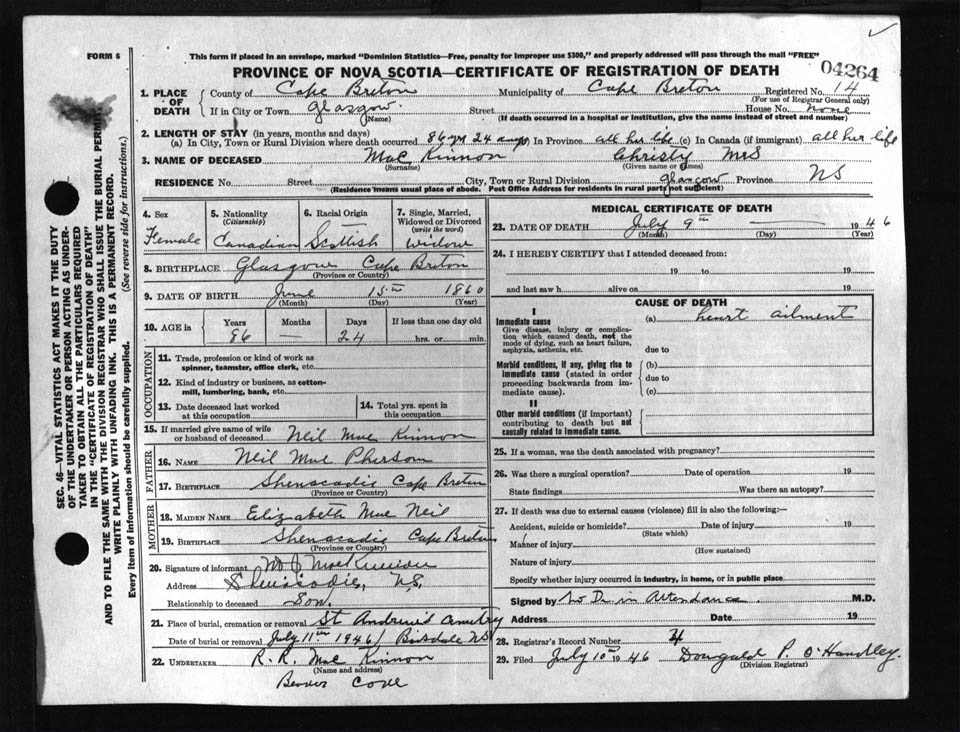 FORM 6
This form if placed in an envelope, marked "Dominion Statistics—Free, penalty for improper use $300," and properly addressed will pass through the mail "FREE"
PROVINCE OF NOVA SCOTIA—CERTIFICATE OF REGISTRATION OF DEATH
04264
1. PLACE OF DEATH { County of Cape Breton Municipality of Cape Breton Registered No. 14
(For use of Registrar General only)
If in City or Town Glasgow. Street House No. none
(Name) (If death occurred in a hospital or institution, give the name instead of street and number)
2. LENGTH OF STAY (in years, months and days)
(a) In City, Town or Rural Division where death occurred 86 yrs 24 days In Province all her life (c) In Canada (if immigrant) all her life
3. NAME OF DECEASED Mac Kinnon Christy Mrs
(Surname) (Given name or names)
RESIDENCE No. Street City, Town or Rural Division Glasgow Province NS
(Residence means usual place of abode. Post Office Address for residents in rural part not sufficient)
SEC. 46—VITAL STATISTICS ACT MAKES IT THE DUTY
OF THE UNDERTAKER OR PERSON ACTING AS UNDER-
TAKER TO OBTAIN ALL THE PARTICULARS REQUIRED
IN THE "CERTIFICATE OF REGISTRATION OF DEATH"
AND TO FILE THE SAME WITH THE DIVISION REGISTRAR WHO SHALL ISSUE THE BURIAL PERM
WRITE PLAINLY WITH UNFADING INK. THIS IS A PERMANENT RECORD.
Every item of information should be carefully supplied. (See reverse side for instructions.)
4. Sex
Female
5. Nationality
(Citizenship)
Canadian
6. Racial Origin
Scottish
7. Single, Married,
Widowed or Divorced
(write the word)
widow
8. BIRTHPLACE Glasgow Cape Breton
(Province or Country)
9. DATE OF BIRTH June 15th 1860
(Month) (Day) (Year)
10. AGE in { Years Months Days If less than one day old
86 — 24 hrs. or min.
OCCUPATION
11. Trade, profession or kind of work as
spinner, teamster, office clerk, etc.
12. Kind of industry or business, as cotton-
mill, lumbering, bank, etc.
13. Date deceased last worked
at this occupation
14. Total yrs. spent in
this occupation
15. If married give name of wife
or husband of deceased Neil Mac Kinnon
FATHER
16. NAME Neil Mac Pherson
17. BIRTHPLACE Shenacadie Cape Breton
(Province or Country)
MOTHER
18. MAIDEN NAME Elizabeth Mac Neil
19. BIRTHPLACE Shenacadie Cape Breton
(Province or Country)
20. Signature of informant MacKinnon
Address N.S.
Relationship to deceased Son.
21. Place of burial, cremation or removal St Andrew's
Date of burial or removal July 11th 1946 Boisdale NS
22. UNDERTAKER R. R. Mac Kinnon
(Name and address)
Beaver Cove
MEDICAL CERTIFICATE OF DEATH
23. DATE OF DEATH July 9th — 1946
(Month) (Day) (Year)
24. I HEREBY CERTIFY that I attended deceased from:
19 to 19
and last saw h alive on 19
CAUSE OF DEATH
I
Immediate cause (a) heart ailment
Give disease, injury or complica-
tion which caused death, not the
mode of dying, such as heart failure,
asphyxia, asthenia, etc.
due to
Morbid conditions, if any, giving rise to
immediate cause (stated in order
proceeding backwards from im-
mediate cause).
(b)
due to
(c)
II
Other morbid conditions (if important)
contributing to death but not
causally related to immediate cause.
25. If a woman, was the death associated with pregnancy?
26. Was there a surgical operation? Date of operation 19
State findings Was there an autopsy?
27. If death was due to external causes (violence) fill in also the following:—
Accident, suicide or homicide? Date of injury 19
(State which)
Manner of injury
(How sustained)
Nature of injury
Specify whether injury occurred in industry, in home, or in public place
Signed by No Dr. in Attendance. M.D.
Address Date 19
28. Registrar's Record Number 4
29. Filed July 10th 1946 Dougald P. O'Handley.
(Division Registrar)